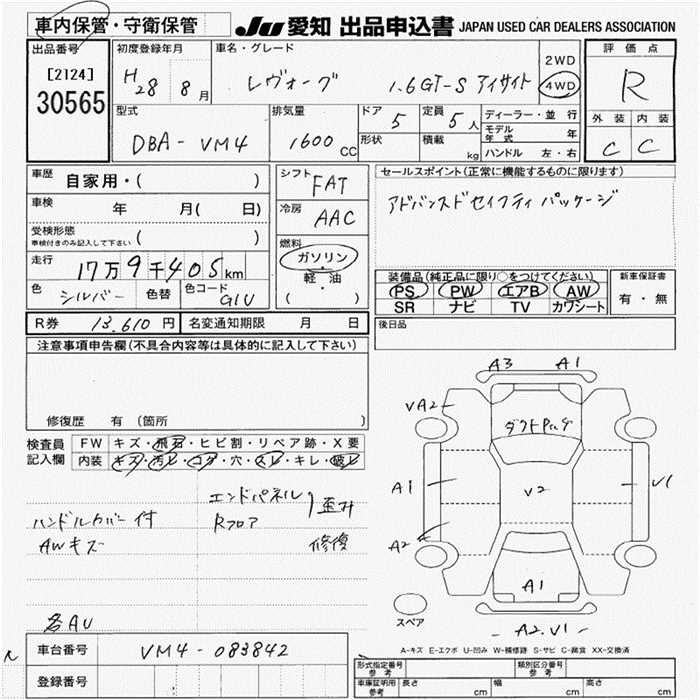 車内保管・守衛保管
JU 愛知 出品申込書 JAPAN USED CAR DEALERS ASSOCIATION
出品番号
[2124]
30565
初度登録年月
H28 8月
車名・グレード
レヴォーグ 1.6GT-S アイサイト
2WD
4WD
評価点
R
外装 内装
C C
型式
DBA-VM4
排気量
1600 CC
ドア 5
形状
定員 5人
積載 kg
ディーラー・並行
モデル年式 年
ハンドル 左・右
車歴 自家用・( )
車検 年 月( 日)
受検形態
車検付きのみ記入して下さい ( )
走行 17万9千405km
色 シルバー 色替 色コード G1U
シフト FAT
冷房 AAC
燃料
ガソリン
・
軽・油
( )
セールスポイント(正常に機能するものに限ります)
アドバンスドセイフティ パッケージ
装備品(純正品に限り○をつけてください)
PS PW エアB AW
SR ナビ TV カワシート
新車保証書
有・無
R券 13,610円 名変通知期限 月 日
後日品
注意事項申告欄(不具合内容等は具体的に記入して下さい)
修復歴 有 (箇所 )
検査員記入欄
FW キズ・飛石・ヒビ割・リペア跡・X要
内装 キズ・汚レ・コゲ・穴・スレ・キレ・破レ
エンドパネル 歪み
ハンドルカバー付 Rフロア
AWキズ 修復
各AU
A3 A1
VA2
ダクトPキズ
A1 V2 V1
A2
A1
スペア A2.V1
A-キズ E-エクボ U-凹み W-補修跡 S-サビ C-腐食 XX-交換済
車台番号 VM4-083842
登録番号
形式指定番号 参考 類別区分番号 参考
車庫証明用 参考 長さ cm 幅 cm 高さ cm